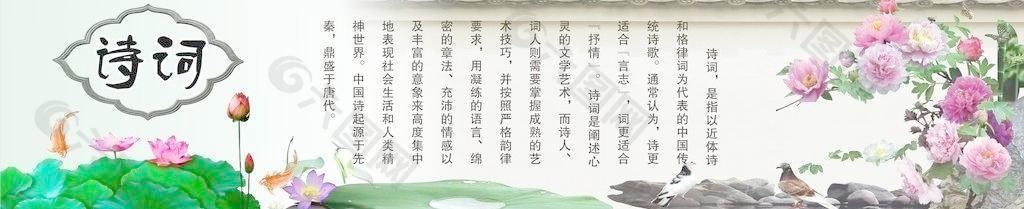 诗词
诗词，是指以近体诗
和格律词为代表的中国传
统诗歌。通常认为，诗更
适合「言志」，词更适合
「抒情」。诗词是阐述心
灵的文学艺术，而诗人、
词人则需要掌握成熟的艺
术技巧，并按照严格韵律
要求，用凝练的语言、绵
密的章法、充沛的情感以
及丰富的意象来高度集中
地表现社会生活和人类精
神世界。中国诗起源于先
秦，鼎盛于唐代。